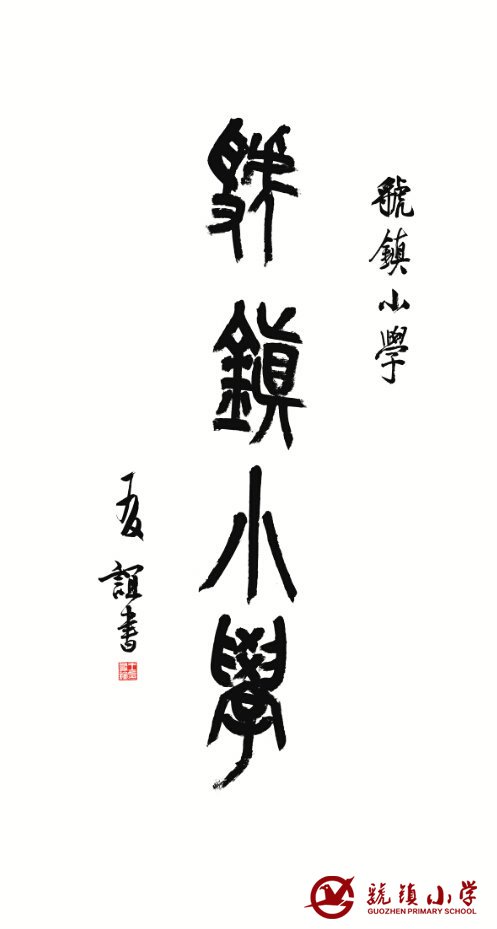 虢鎮小學
虢鎮小學
友誼書
虢镇小学
GUOZHEN PRIMARY SCHOOL